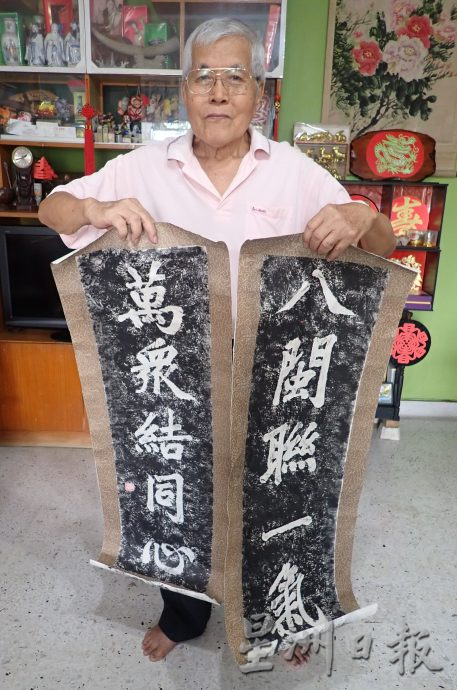 八閩聯一氣
萬眾結同心
星洲日報